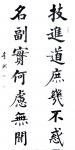 技進道庶幾不惑
名副實何慮無聞